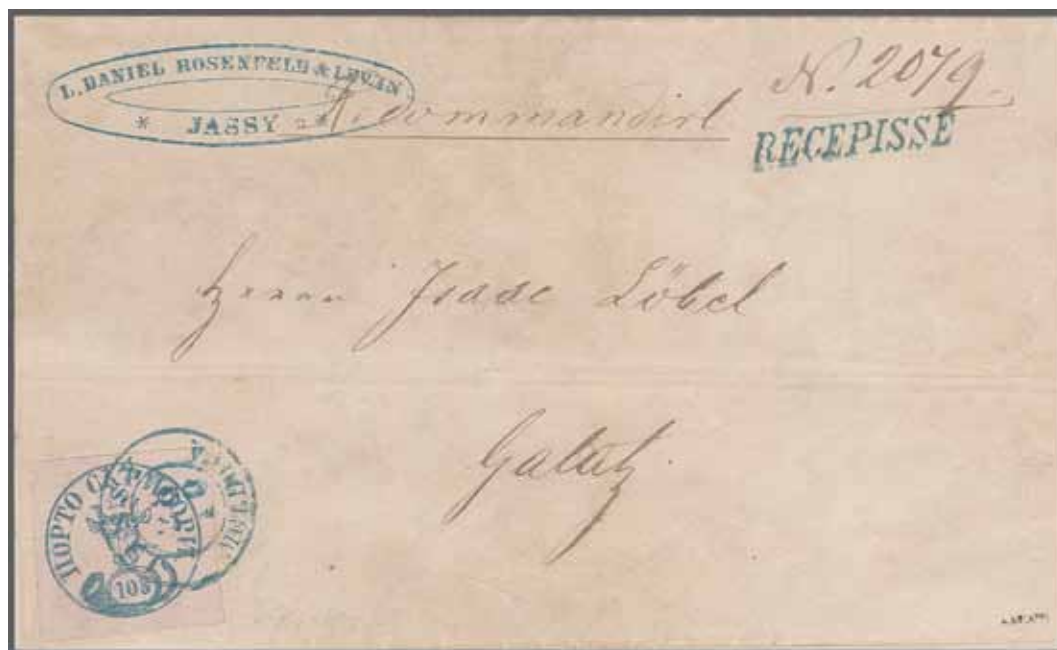 L. DANIEL ROSENFELD & LEVIN
* JASSY *
Recommandirt
N. 2079.
RECEPISSE
Herrn Isaac Löbel
Galatz.
ПОРТО СКРИСОРИ
108